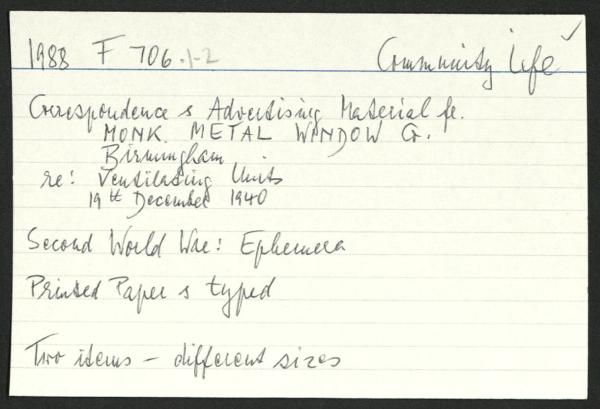 1988 F 706.1-2 Community Life ✓
Correspondence & Advertising Material fr.
MONK METAL WINDOW Co.
Birmingham
re: Ventilating Units
19th December 1940
Second World War: Ephemera
Printed Paper & typed
Two items - different sizes